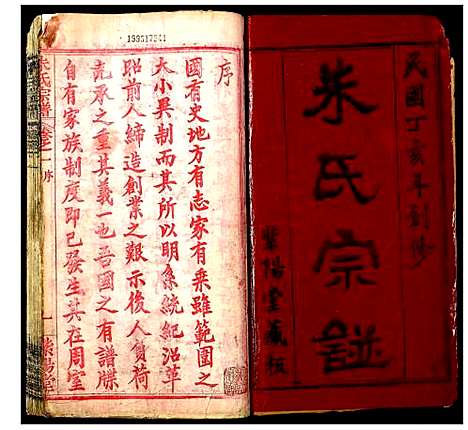 民國丁亥年創修
朱氏宗譜
紫陽堂藏板
153517541
序
國有史地方有志家有乘雖範圍之
大小異制而其所以明系統紀沿革
昭前人締造創業之艱示後人負荷
克承之重其義一也吾國之有譜牒
自有家族制度即已發生其在周室
朱氏宗譜
卷之一序
一
紫陽堂